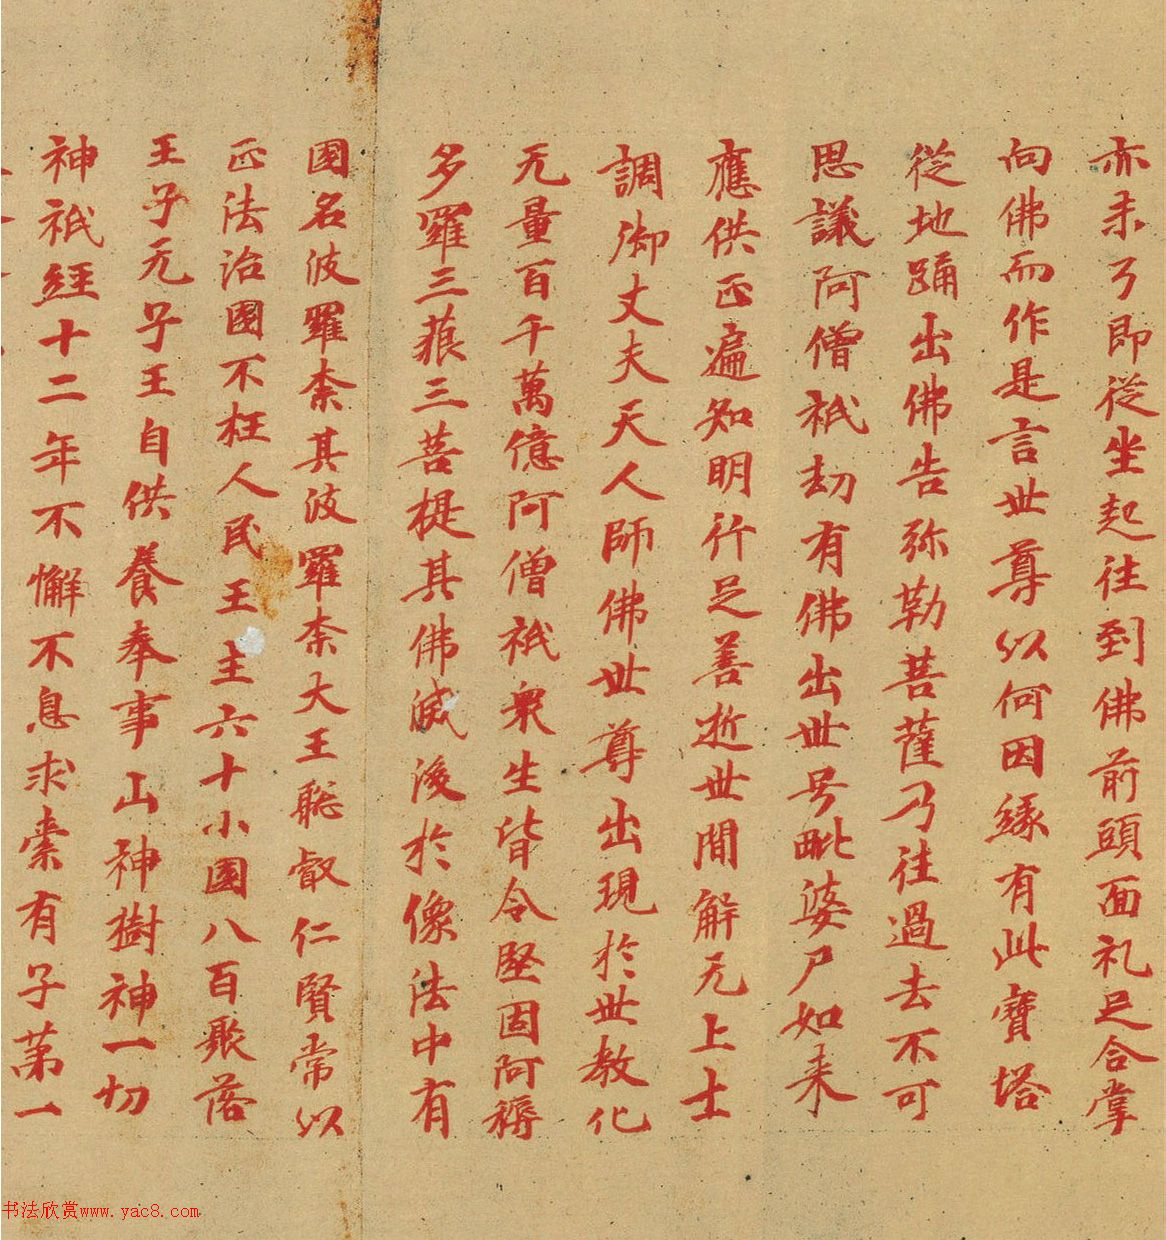 亦未了即從坐起往到佛前頭面礼足合掌
向佛而作是言世尊以何因緣有此寶塔
從地踊出佛告弥勒菩薩乃往過去不可
思議阿僧祇劫有佛出世号毗婆尸如来
應供正遍知明行足善逝世間解无上士
調御丈夫天人師佛世尊出現於世教化
无量百千萬億阿僧祇衆生皆令堅固阿耨
多羅三藐三菩提其佛滅後於像法中有
國名波羅柰其波羅柰大王聡叡仁賢常以
正法治國不枉人民王主六十小國八百聚落
王子无子王自供養奉事山神樹神一切
神祇經十二年不懈不息求索有子第一
书法欣赏www.yac8.com